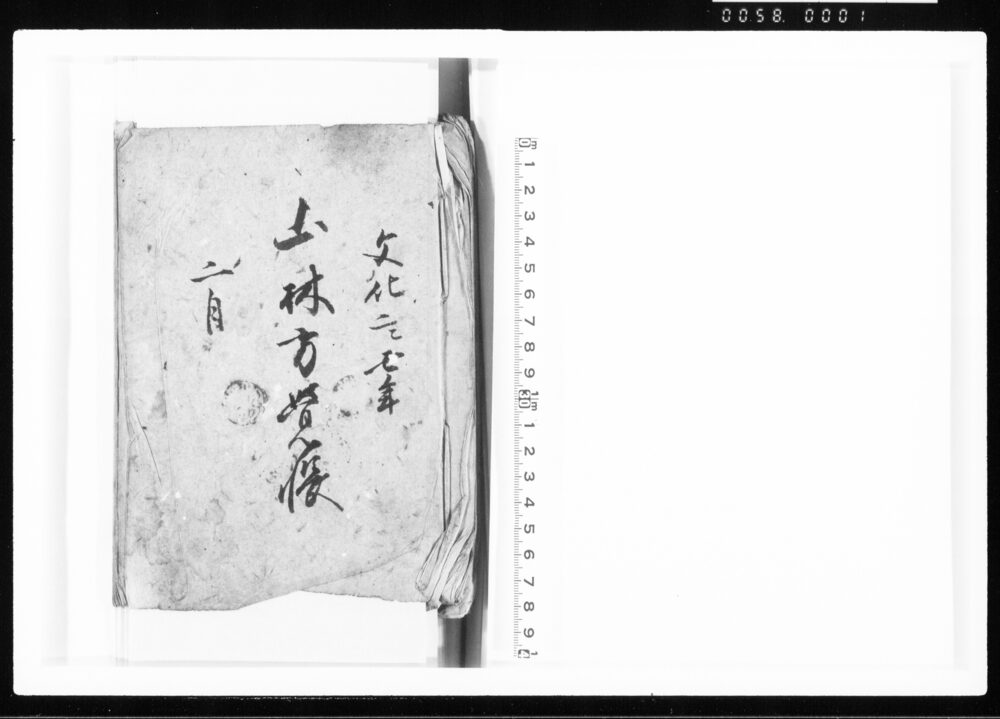 0058. 0001
文化二丑年
山林方覚帳
二月
1 2 3 4 5 6 7 8 9 1 2 3 4 5 6 7 8 9